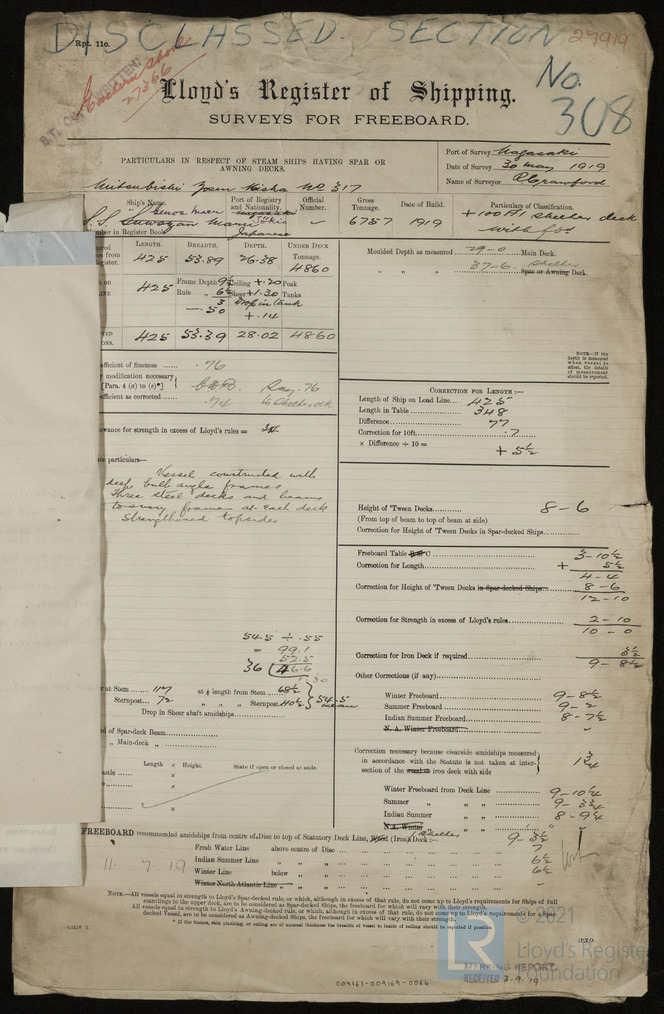 DISCLASSED. SECTION 27919
Rpt. 11c.
27366
No. 308
Lloyd's Register of Shipping.
SURVEYS FOR FREEBOARD.
PARTICULARS IN RESPECT OF STEAM SHIPS HAVING SPAR OR
AWNING DECKS.
Port of Survey Nagasaki
Date of Survey 30 May 1919
Name of Surveyor R Crawford
Mitsubishi Zosen Kaisha No 317
Ship's Name. Port of Registry and Nationality. Official Number. Gross Tonnage. Date of Build. Particulars of Classification.
Japanese
6757 1919 +100A1 shelter deck
with fbd
mber in Register Book
LENGTH. BREADTH. DEPTH. UNDER DECK Tonnage.
425 53.89 26.38 4860
425 Frame Depth 9½ Ceiling +.20 Peak
Rule „ 6½ Sheer +1.30 Tanks
3 Drop in tank
—.50 +.14
425 53.39 28.02 4860
Moulded Depth as measured 29-0 Main Deck.
„ „ „ 37-6 Shelter Spar or Awning Deck.
NOTE.—If the
depth is measured
when vessel is
afloat, the details
of measurement
should be reported.
efficient of fineness .76
modification necessary
[Para. 4 (a) to (e)*] Say .76
efficient as corrected .74 to Shelter dk
CORRECTION FOR LENGTH:—
Length of Ship on Load Line 425
Length in Table 348
Difference 77
Correction for 10ft. .7
× Difference ÷ 10 = +5½
wance for strength in excess of Lloyd's rules = 34
te particulars—
Vessel constructed with
deep bulb angle frames
Three steel decks and beams
to every frame at each deck
Strengthened topsides
Height of 'Tween Decks 8-6
(From top of beam to top of beam at side)
Correction for Height of 'Tween Decks in Spar-decked Ships
Freeboard Table C 3-10½
Correction for Length + 5½
4-4
Correction for Height of 'Tween Decks in Spar-decked Ships 8-6
12-10
Correction for Strength in excess of Lloyd's rules 2-10
10-0
Correction for Iron Deck if required 3½
9-8½
Other Corrections (if any)
54.5 ÷ .55
= 99.1
52.5
36 (46.6
r at Stem 117 at ⅛ length from Stem 68½
Sternpost 72 „ „ „ Sternpost 40½ 54.5 mean
Drop in Sheer abaft amidships
Winter Freeboard 9-8½
Summer Freeboard 9-2
Indian Summer Freeboard 8-7½
N. A. Winter Freeboard „
d of Spar-deck Beam
„ Main-deck „
Length × Height. State if open or closed at ends
Correction necessary because clearside amidships measured
in accordance with the Statute is not taken at inter-
section of the wood or iron deck with side 1¾
Winter Freeboard from Deck Line 9-10¼
Summer „ „ „ 9-3¾
Indian Summer „ „ „ 8-9¼
N.A. Winter „ „ „
FREEBOARD recommended amidships from centre of Disc to top of Statutory Deck Line, Wood (Iron) Shelter Deck:— 9-3½
Fresh Water Line above centre of Disc 7
Indian Summer Line „ „ 6½
Winter Line below „ 6½
Winter North Atlantic Line „ „
11. 7. 19
NOTE.—All vessels equal in strength to Lloyd's Spar-decked rule, or which, although in excess of that rule, do not come up to Lloyd's requirements for Ships of full
scantlings to the upper deck, are to be considered as Spar-decked Ships, the freeboard for which will vary with their strength.
All vessels equal in strength to Lloyd's Awning-decked rule, or which, although in excess of that rule, do not come up to Lloyd's requirements for a Spar-
decked Vessel, are to be considered as Awning-decked Ships, the freeboard for which will vary with their strength.
* If the frames, skin planking, or ceiling are of unusual thickness the breadth of vessel to inside of ceiling should be reported if possible.
[P.T.O.
MARKING REPORT.
RECEIVED 3.9.19
LR © 2021
Lloyd's Register
Foundation
009163-009169-0066